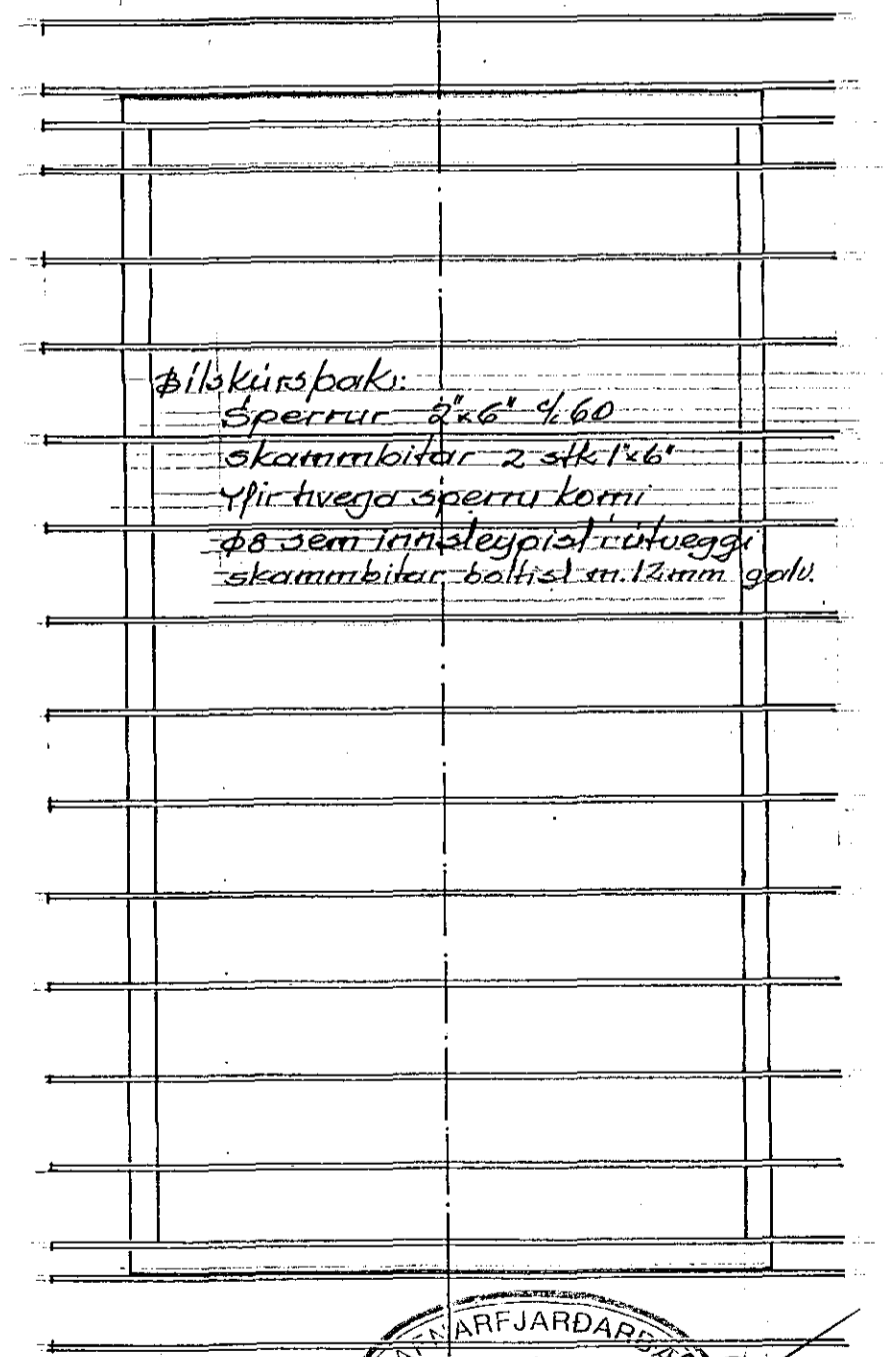 Bílskúrsþak:
Sperrur 2"x6" c/c 60
skammbitar 2 stk 1"x6"
Yfir hverja sperru komi
ø8 sem innsteypist í útveggi
skammbitar boltist m. 12mm galv.